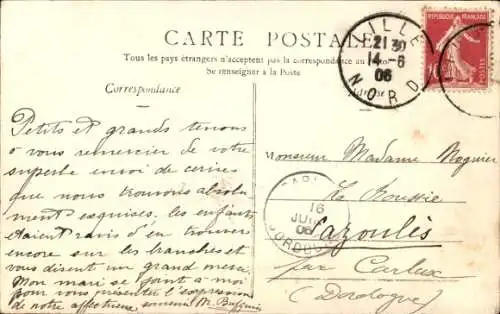 CARTE POSTALE
Tous les pays étrangers n'acceptent pas la correspondance au
Se renseigner à la Poste
Correspondance
Adresse
Petits et grands tenons
à vous remercier de votre
superbe envoi de cerises
que nous trouvons absolu
ment exquises. les enfants
étaient ravis d'en trouver
encore sur les branches et
vous disent un grand merci.
Mon mari se joint à moi
pour vous présenter l'expression
de notre affectueux souvenir M.
Monsieur Madame
La Roussie
Cazoulès
par Carlux
(Dordogne)
LILLE
21 30
14-6
06
NORD
REPUBLIQUE FRANÇAISE
10
POSTES
CARLUX
16
JUIN
06
DORDOGNE